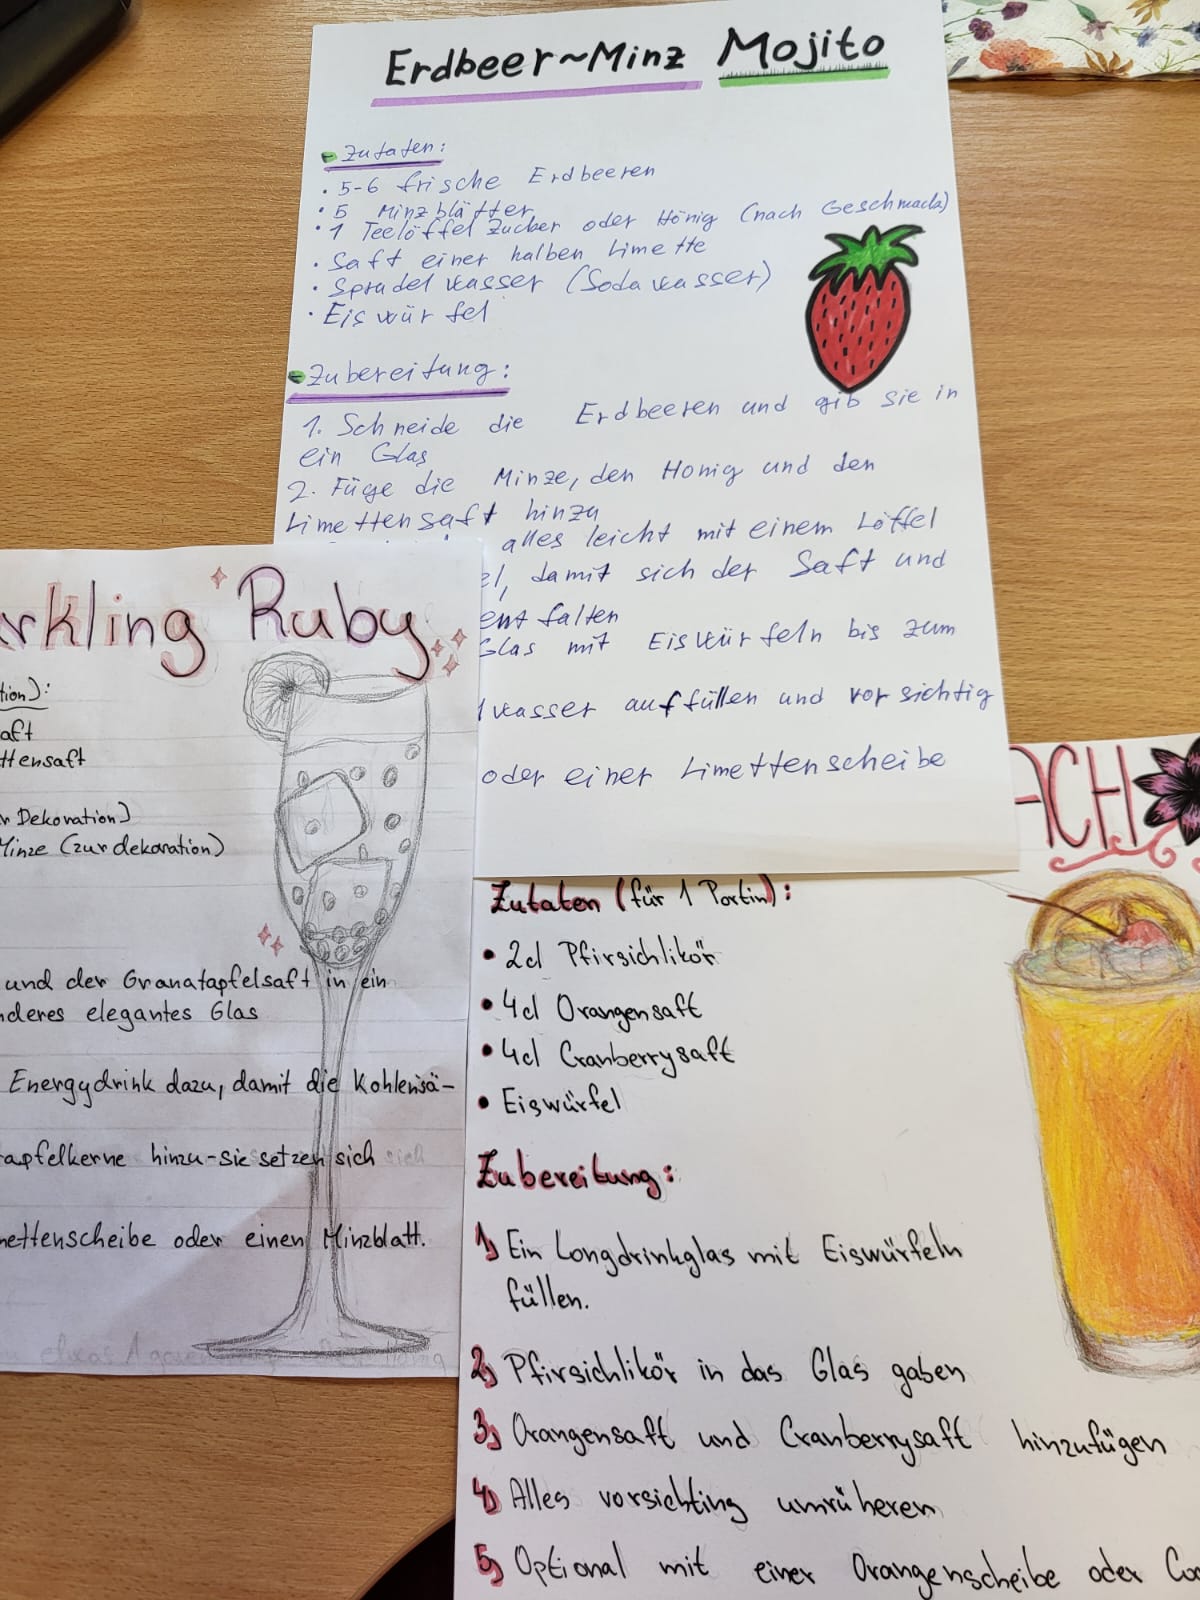 Erdbeer~Minz Mojito
Zutaten:
• 5-6 frische Erdbeeren
• 5 Minzblätter
• 1 Teelöffel Zucker oder Hönig (nach Geschmack)
• Saft einer halben Limette
• Sprudel wasser (Soda wasser)
• Eis wür fel
Zubereitung:
1. Schneide die Erdbeeren und gib sie in
ein Glas
2. Füge die Minze, den Honig und den
Limettensaft hinzu
alles leicht mit einem Löffel
el, damit sich der Saft und
entfalten
Glas mit Eiswürfeln bis zum
wasser auffüllen und vorsichtig
oder einer Limettenscheibe
rkling Ruby
tion):
aft
ttensaft
r Dekoration)
Minze (zur dekoration)
und der Granatapfelsaft in ein
nderes elegantes Glas
Energydrink dazu, damit die Kohlensä-
apfelkerne hinzu-sie setzen sich
mettenscheibe oder einen Minzblatt.
ACH
Zutaten (für 1 Portin):
• 2cl Pfirsichlikör
• 4cl Orangensaft
• 4cl Cranberrysaft
• Eiswürfel
Zubereitung:
1) Ein Longdrinkglas mit Eiswürfeln
füllen.
2) Pfirsichlikör in das Glas gaben
3) Orangensaft und Cranberrysaft hinzufügen
4) Alles vorsichting umrüheren
5) Optional mit einer Orangenscheibe oder Co